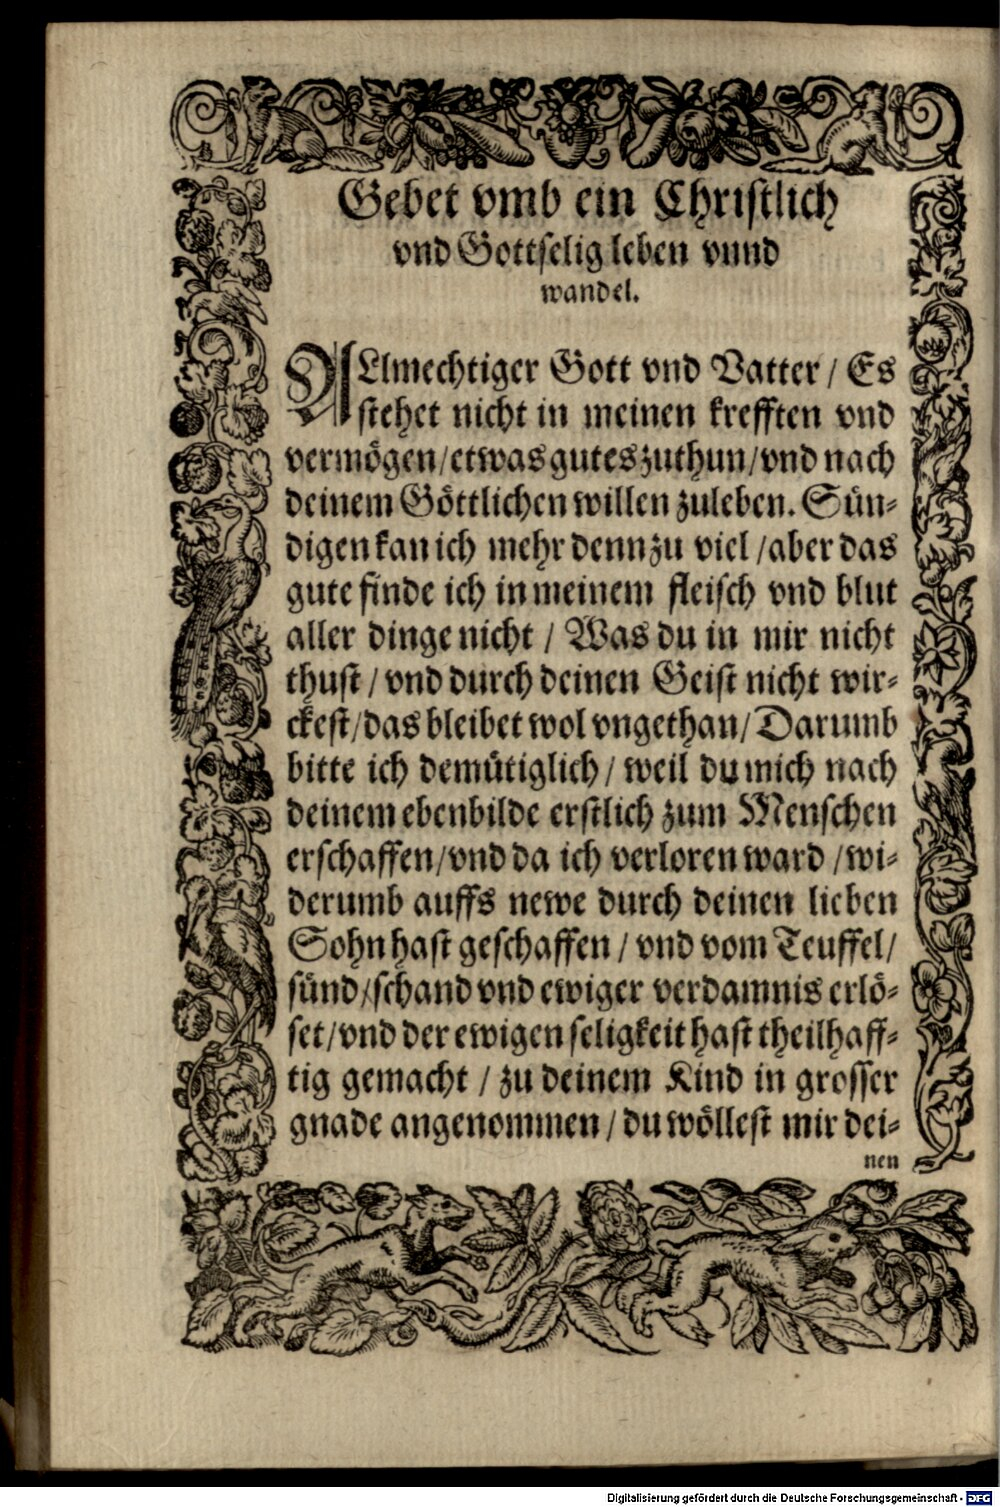 Gebet vmb ein Christlich
vnd Gottselig leben vnnd
wandel.
ALlmechtiger Gott vnd Vatter / Es
stehet nicht in meinen krefften vnd
vermögen / etwas gutes zuthun / vnd nach
deinem Göttlichen willen zuleben. Sün-
digen kan ich mehr denn zu viel / aber das
gute finde ich in meinem fleisch vnd blut
aller dinge nicht / Was du in mir nicht
thust / vnd durch deinen Geist nicht wir-
ckest / das bleibet wol vngethan / Darumb
bitte ich demütiglich / weil du mich nach
deinem ebenbilde erstlich zum Menschen
erschaffen / vnd da ich verloren ward / wi-
derumb auffs newe durch deinen lieben
Sohn hast geschaffen / vnd vom Teuffel /
sünd / schand vnd ewiger verdamnis erlö-
set / vnd der ewigen seligkeit hast theilhaff-
tig gemacht / zu deinem Kind in grosser
gnade angenommen / du wöllest mir dei-
nen
Digitalisierung gefördert durch die Deutsche Forschungsgemeinschaft - DFG